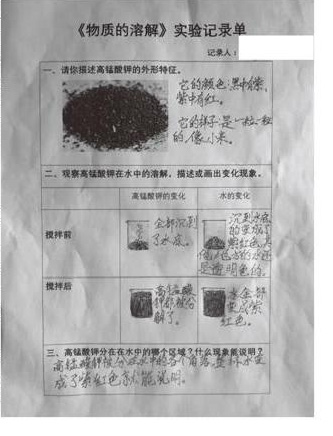 《物质的溶解》实验记录单
记录人：
一、请你描述高锰酸钾的外形特征。
它的颜色:黑中有紫,
紫中有红。
它的样子是一粒一粒
的,像小米。
二、观察高锰酸钾在水中的溶解，描述或画出变化现象。
高锰酸钾的变化
水的变化
搅拌前
全部沉到
了水底。
沉到水底
的变成了
紫红色,其
他地方的水还
是透明色的。
搅拌后
高锰酸
钾都被分
解了。
水全部
变成紫
红色。
三、高锰酸钾分在在水中的哪个区域？什么现象能说明？
高锰酸钾被分在水中的各个角落,整杯水变
成了紫红色就能说明。